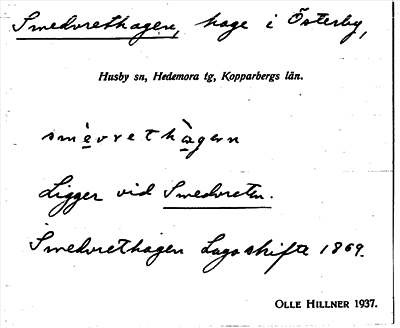 Smedvrethagen, hage i Österby,
Husby sn, Hedemora tg, Kopparbergs län.
smèvrethàgen
Ligger vid Smedvreten.
Smedvrethagen Laga skifte 1869.
OLLE HILLNER 1937.